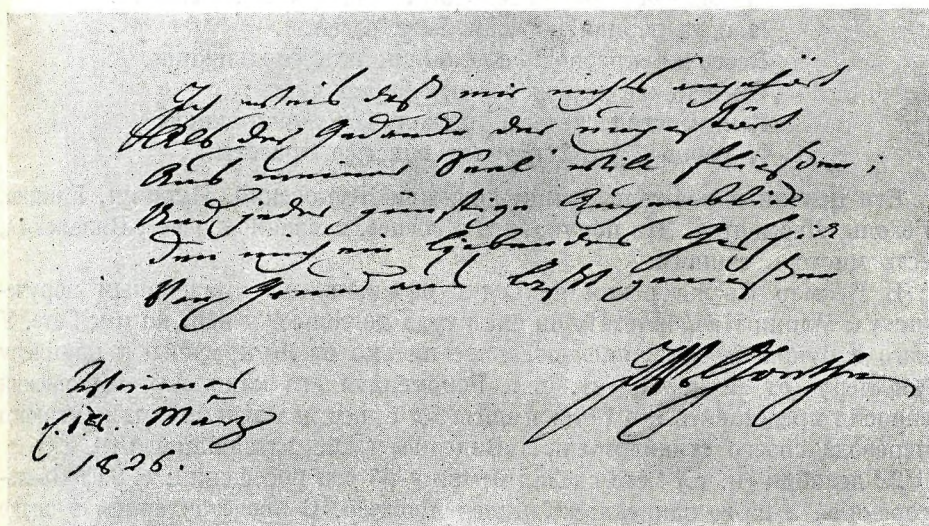 Ich weis daß mir nichts angehört
Als der Gedancke der ungestört
Aus meiner Seele will fließen;
Und jeder günstige Augenblick
Den mich ein liebendes Geschick
Von Grund aus läßt genießen
Weimar
März
1826.
JWvGoethe